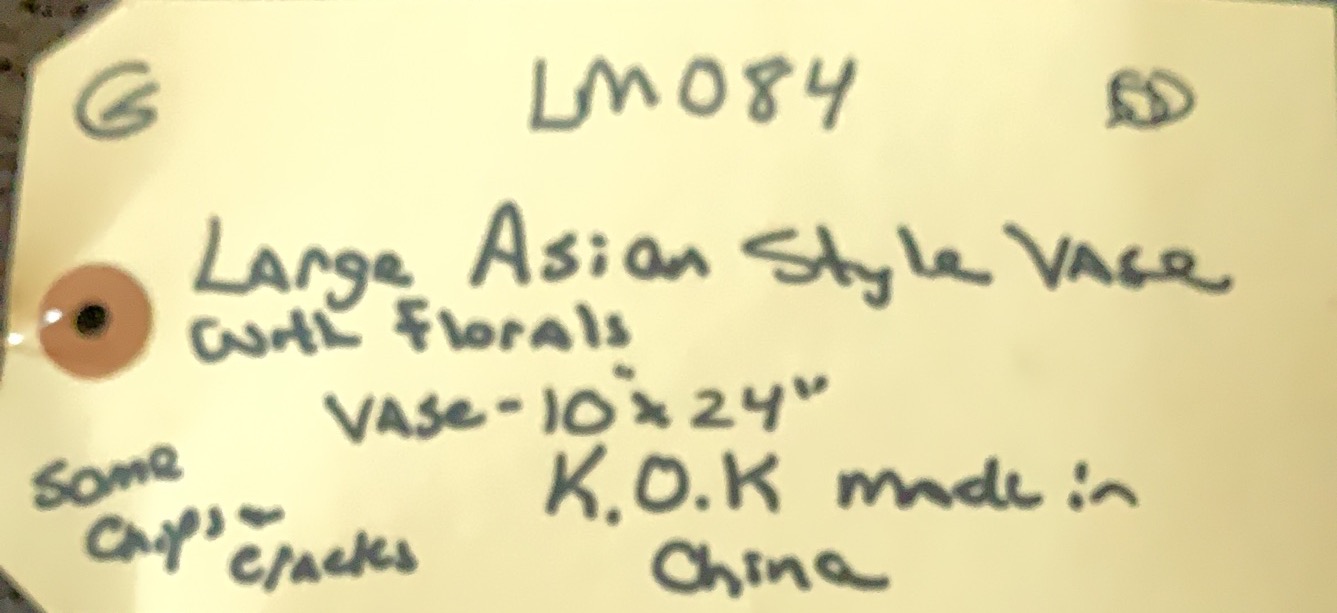 LM084
Large Asian Style Vase
with florals
Vase - 10" x 24"
Some
Chips -
cracks
K.O.K made in
China